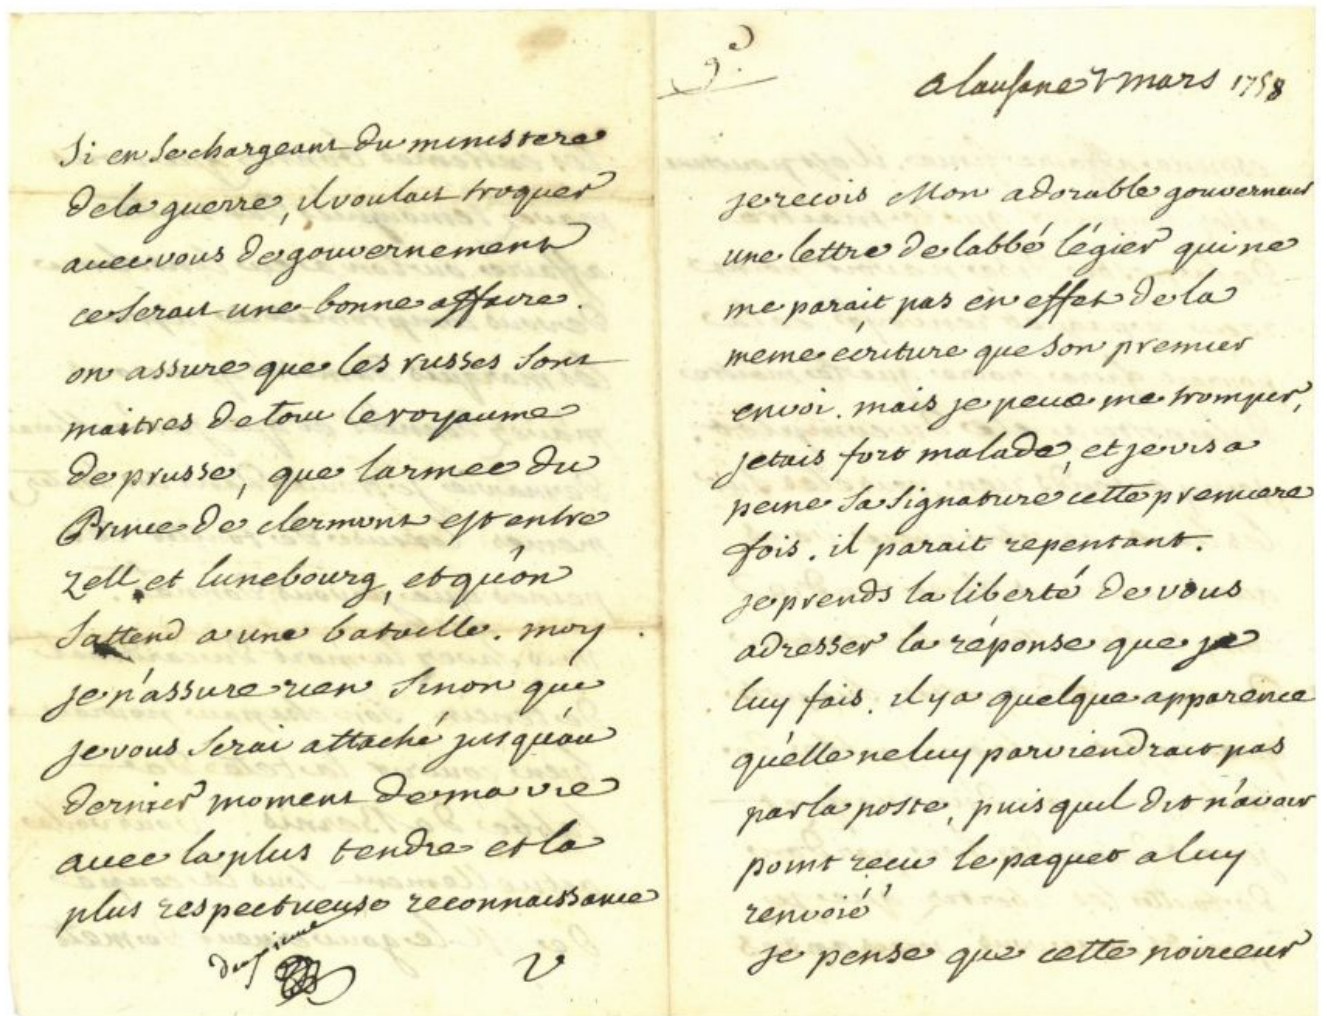 Si en se chargeant du ministere
de la guerre, il voulait troquer
avec vous de gouvernement
ce serait une bonne affaire.
on assure que les russes sont
maitres de tout le royaume
de prusse, que larmee du
Prince de clermont est entre
zell et lunebourg, et qu'on
s'attend a une bataille. moy
je n'assure rien sinon que
je vous serai attaché jusqu'au
dernier moment de ma vie
avec la plus tendre et la
plus respectueuse reconnaissance
V
9e.
a lausane 7 mars 1758
je recois Mon adorable gouverneur
une lettre de labbé légier qui ne
me parait pas en effet de la
meme écriture que son premier
envoi. mais je peux me tromper,
jetais fort malade, et je vis a
peine sa signature cette premiere
fois. il parait repentant.
je prends la liberté de vous
adresser la réponse que je
luy fais. il y a quelque apparence
qu'elle ne luy parviendrait pas
par la poste, puis quil dit n'avoir
point recu le paquet a luy
renvoié
je pense que cette noirceur